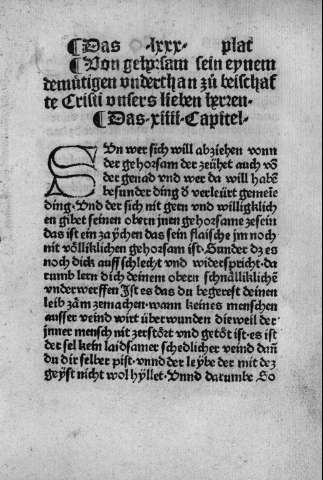 ¶Das ·lxxx· plat
¶Von gehorsam sein eynem
demütigen vnderthan zů beischaf
te Cristi vnsers lieben herren·
¶Das·xiiii·Capitel·
SUn wer sich will abziehen vonn
der gehorsam der zeühet auch võ
der genad vnd wer da will habẽ
besunder ding đ verleürt gemeĩe
ding·Vnd der sich nit gern vnd williglich
en gibet seinen obern jnen gehorsame zesein
das ist ein zaychen das sein flaische jm noch
nit völliklichen gehorsam ist·Sunder dz es
noch dick auff schlecht vnd widerspricht·da
rumb lern dich deinem obern schnälliklichẽ
vnderwerffen Ist es das du begerest deinen
leib zäm zemachen·wann keines menschen
ausser veind wirt überwunden die weil der
jnner mensch nit zerstört vnd getöt ist·es ist
der sel kein laidsamer schedlicher veind dañ
du dir selber pist·vnnd der leybe der mit dez
geyst nicht wol hyllet·Vnnd darumbe So